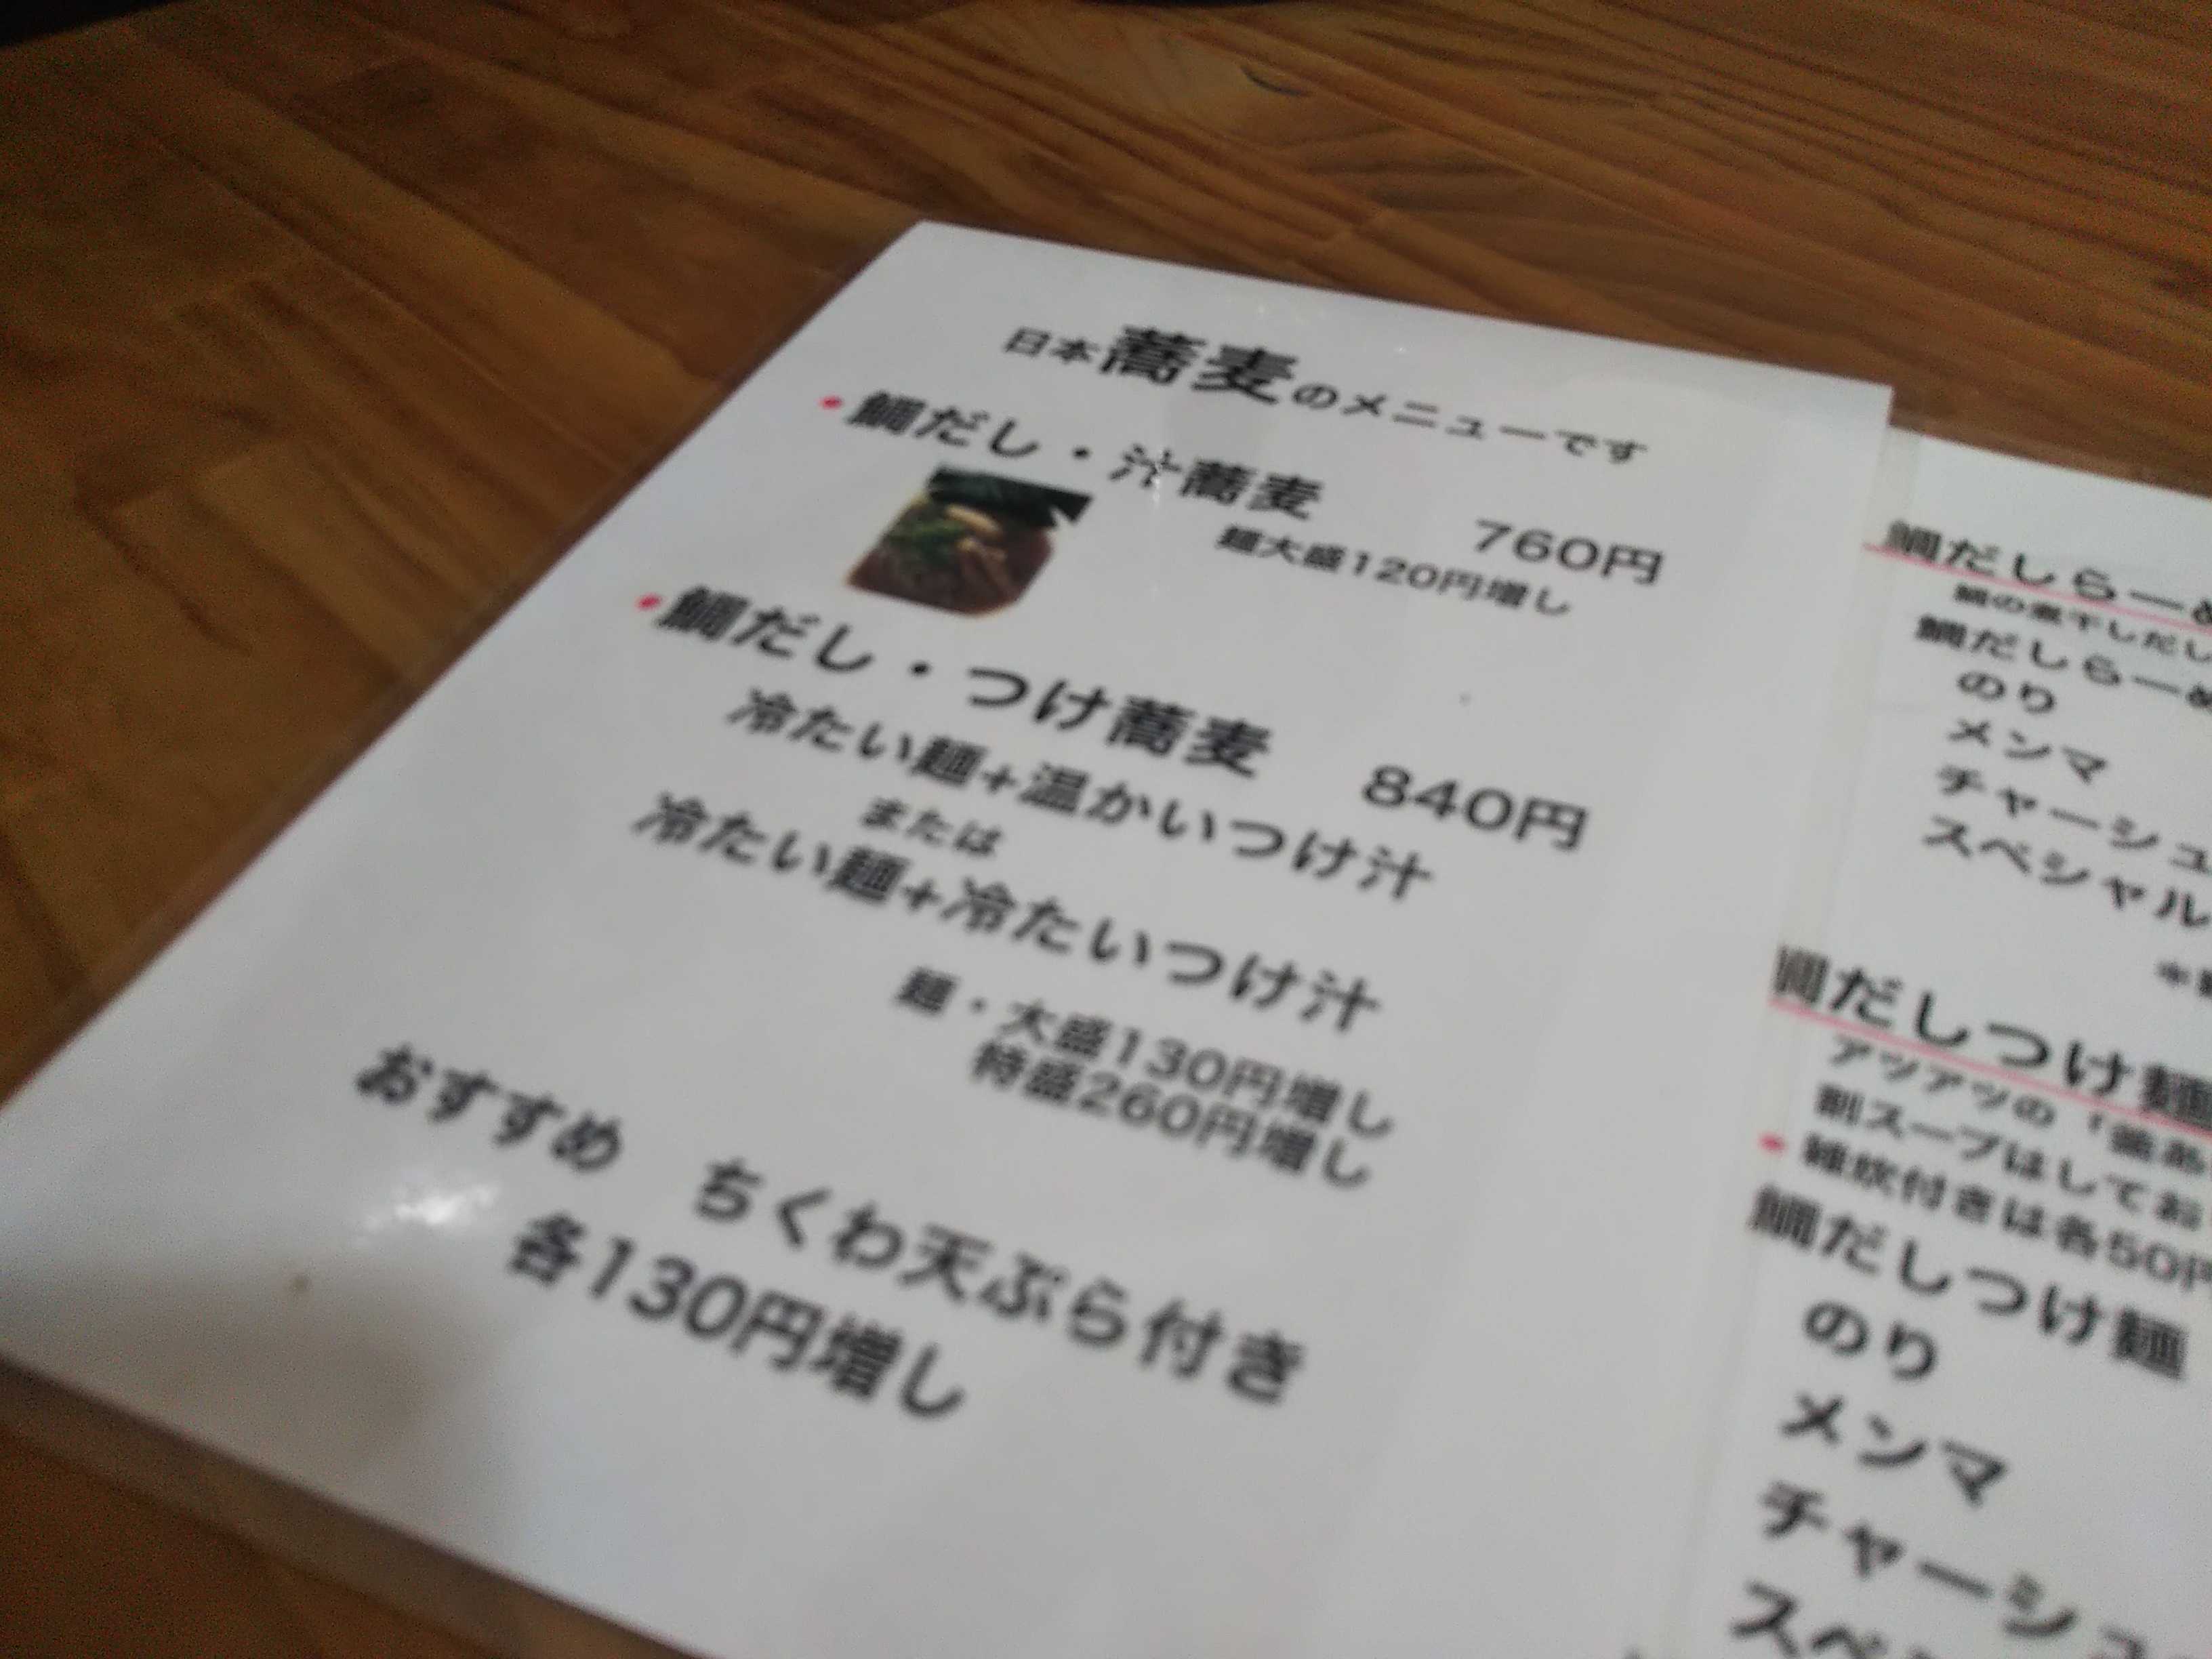 日本蕎麦のメニューです
・鯛だし・汁蕎麦 760円
麺大盛120円増し
・鯛だし・つけ蕎麦 840円
冷たい麺+温かいつけ汁
または
冷たい麺+冷たいつけ汁
麺・大盛130円増し
特盛260円増し
おすすめ ちくわ天ぷら付き
各130円増し
鯛だしらーめ
鯛の煮干しだし
鯛だしらーめ
のり
メンマ
チャーシュ
スペシャル
鯛だしつけ麺
アツアツの「
割スープはしてお
・雑炊付きは各50円
鯛だしつけ麺
のり
メンマ
チャーシュ
スペ